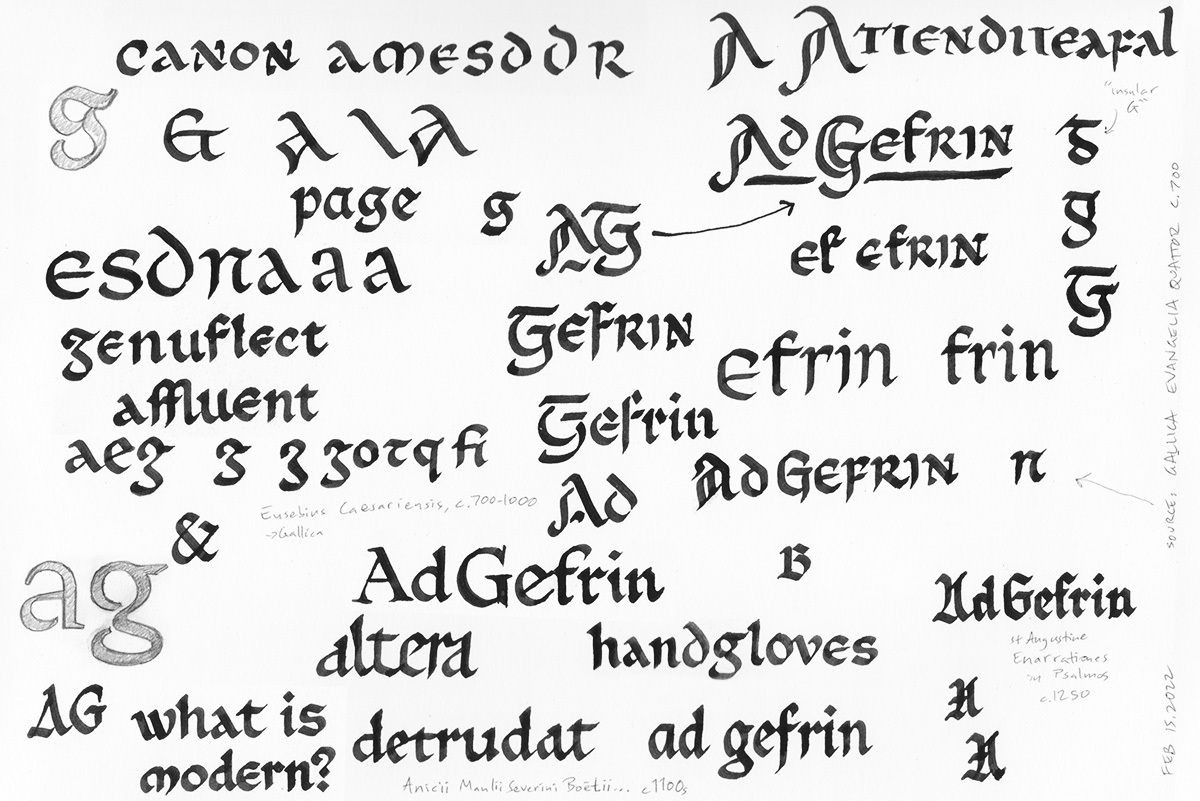 CANON AMESDDR
A ATTENDITEAFAL
"insular G"
g G A \ A
Ad GefrIN G
page g AG g
ef efrIN
esdnaaa G
genuflect GEFRIN
efrin frin
affluent
Gefrin
aeg g g gotq fi
Ad GEFRIN n
Eusebius Caesariensis, c.700-1000
→Gallica
Ad
&
ag
Ad Gefrin B
Ad Gefrin
altera handgloves
St Augustine
Enarrationes
in Psalmos
c.1250
AG what is
modern?
detrudat ad gefrin
A
A
Anicii Manlii Severini Boëtii... c1100s
SOURCES GALLICA EVANGELIA QUATTOR C.700
FEB 15, 2022